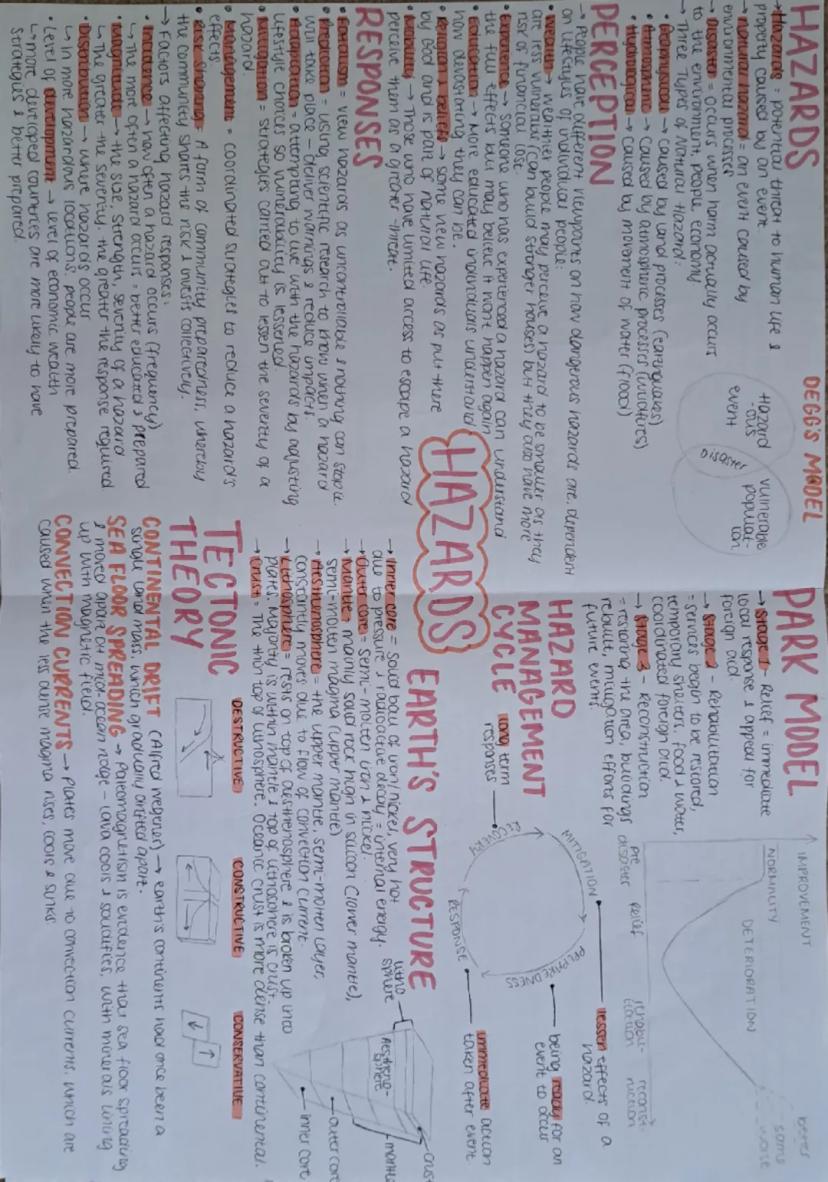 HAZARDS
→ Hazards = potential threat to human life &
property caused by an event.
→ natural hazard = an event caused by
environmental processes
→ Disaster = occurs when harm actually occurs
to the environment, people, economy
→ Three Types of Natural Hazard:
• Geophysical → caused by land processes (earthquakes)
• Atmospheric → caused by atmospheric processes (wildfires)
• Hydrological → caused by movement of water (flood)
DEGG'S MODEL
Hazard
-ous
event
Disaster
vulnerable
populat-
ion
PERCEPTION
→ People have different viewpoints on how dangerous hazards are, dependent
on lifestyles of individual people:
• Wealth → wealthier people may perceive a hazard to be smaller as they
are less vulnerable (can build stronger houses) but they also have more
risk of financial loss.
• Experience → someone who has experienced a hazard can understand
the full effects but may believe it won't happen again
• Education → More educated individuals understand
how devastating they can be.
• Religion & beliefs → some view hazards as put there
by God and is part of natural life.
• Mobility → Those who have limited access to escape a hazard
perceive them as a greater threat.
RESPONSES
• Fatalism = view hazards as uncontrollable & nothing can stop it.
• Prediction = using scientific research to know when a hazard
will take place – deliver warnings & reduce impact.
• Adaptation = attempting to live with the hazards by adjusting
lifestyle choices so vulnerability is lessened
• Mitigation = strategies carried out to lessen the severity of a
hazard.
• Management = coordinated strategies to reduce a hazard's
effects
• Risk sharing = A form of community preparedness, whereby
the community shares the risk & invests collectively.
→ Factors affecting hazard responses:
• Incidence → how often a hazard occurs (frequency)
↳ The more often a hazard occurs = better educated & prepared
• Magnitude → the size, strength, severity of a hazard
↳ The greater the severity, the greater the response required
• Distribution → where hazards occur
↳ in more hazardous locations, people are more prepared
• Level of development → level of economic wealth
↳ more developed countries are more likely to have
strategies & better prepared.
HAZARDS
PARK MODEL
→ Stage 1 - Relief = immediate
local response & appeal for
foreign aid.
→ Stage 2 - Rehabilitation
= services begin to be restored,
temporary shelters, food & water,
coordinated foreign aid.
→ Stage 3 - Reconstruction
= restoring the area, buildings
rebuilt, mitigation efforts for
future events.
IMPROVEMENT
NORMALITY
DETERIORATION
better
same
worse
pre
disaster
relief
rehabili-
tation
reconst-
ruction
HAZARD
MANAGEMENT
CYCLE
long term
responses
MITIGATION
PREPAREDNESS
RESPONSE
RECOVERY
lessen effects of a
hazard.
being ready for an
event to occur
immediate action
taken after event
EARTH'S STRUCTURE
→ Inner core = Solid ball of iron/nickel, very hot
due to pressure & radioactive decay = internal energy.
→ Outer core = Semi-molten iron & nickel.
→ Mantle = mainly solid rock high in silicon (lower mantle),
semi-molten magma (upper mantle)
→ Asthenosphere = the upper mantle, semi-molten layer,
constantly moves due to flow of convection current.
→ Lithosphere = rests on top of aesthenosphere & is broken up into
plates. Majority is within mantle & top of lithosphere is crust.
→ Crust = The thin top of lithosphere. Oceanic crust is more dense than continental.
litho
sphere
Aestheno-
sphere
crust
mantle
outer core
inner core
TECTONIC
THEORY
DESTRUCTIVE
CONSTRUCTIVE
CONSERVATIVE
CONTINENTAL DRIFT (Alfred Wegener) → earth's continents had once been a
single land mass, which gradually drifted apart.
SEA FLOOR SPREADING → Paleomagnetism is evidence that sea floor spreading
& moved apart at mid-ocean ridge – lava cools & solidifies, with minerals lining
up with magnetic field.
CONVECTION CURRENTS → Plates move due to convection currents, which are
caused when the less dense magma rises, cools & sinks